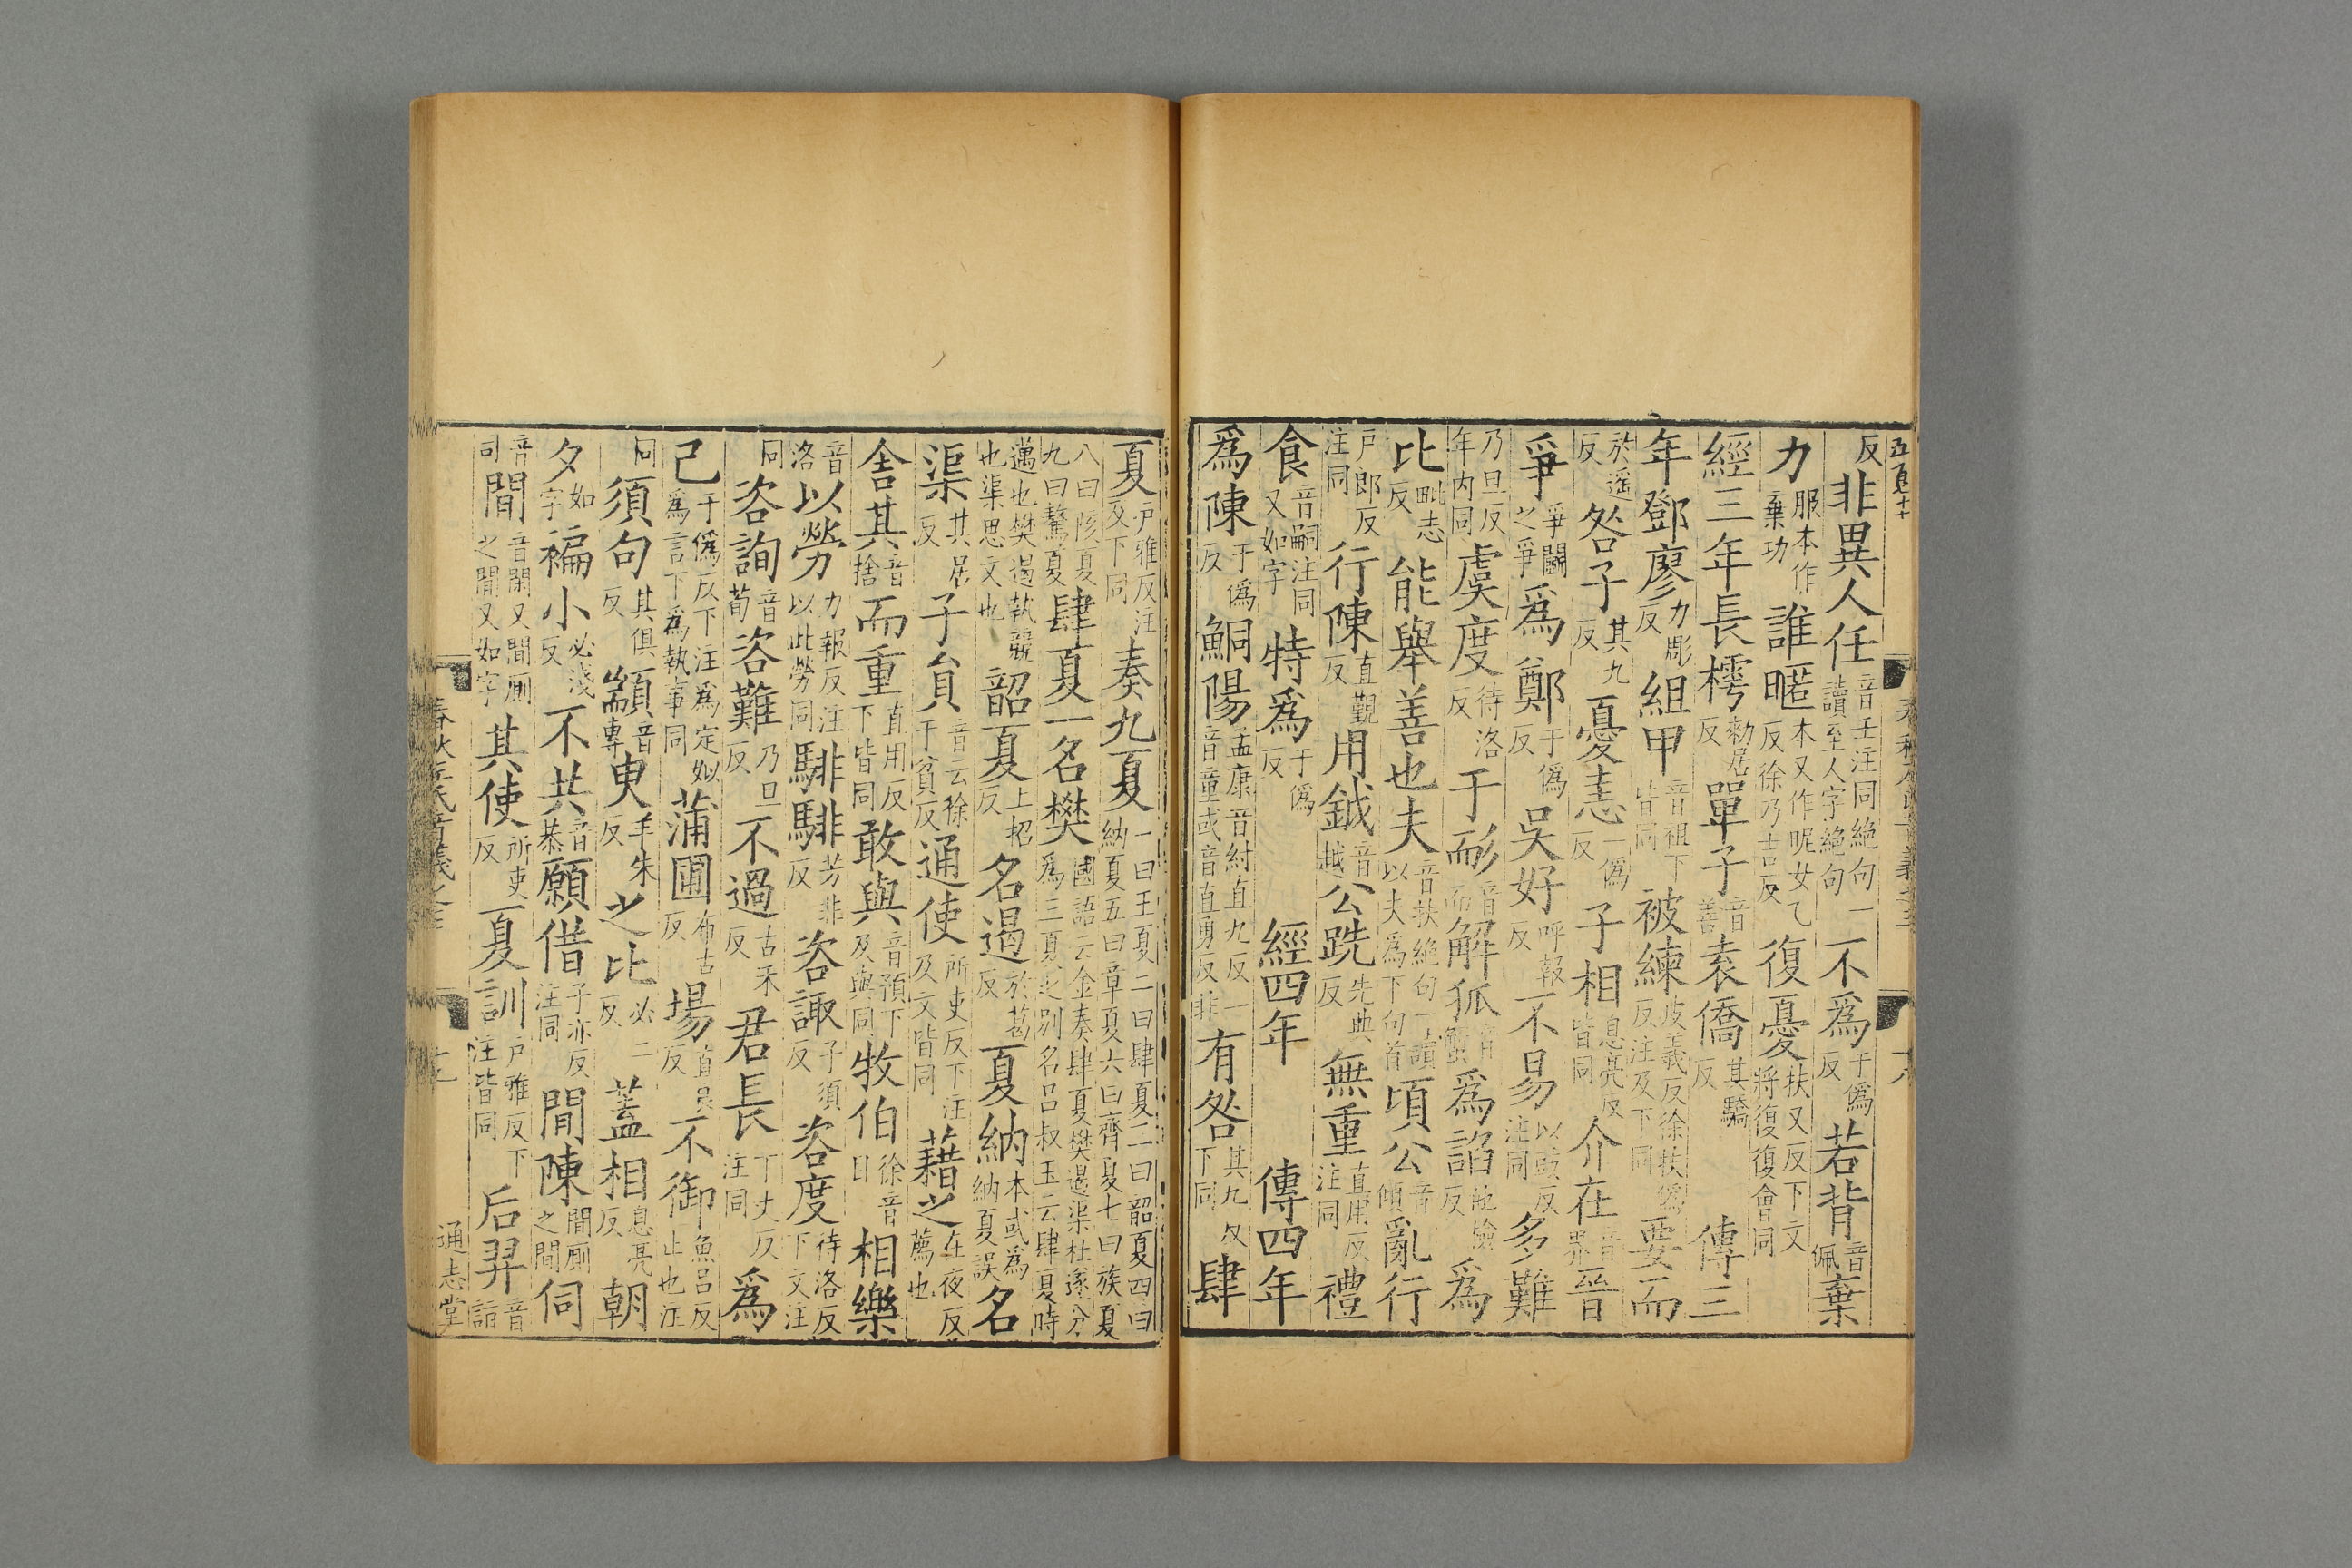 反非異人任音壬注同絶句一讀至人字絶句不爲于僞反若背音佩棄
力服本作棄功誰暱本又作昵女乙反徐乃吉反復憂扶又反下文將復復會同
經三年長樗勑居反單子音善袁僑其驕反傳三
年鄧廖力彫反組甲音祖下皆同被練皮義反徐扶僞反注及下同要而
於遥反咎子其九反憂恚一僞反子相息亮反皆同介在音界晉
爭爭鬭之爭爲鄭于僞反吳好呼報反不易以豉反注同多難
乃旦反年内同虞度待洛反于耏音而解狐音蟹爲諂他檢反爲
比毗志反能舉善也夫音扶絶句一讀以夫爲下句首頃公音傾亂行
戸郎反注同行陳直覲反用鉞音越公跣先典反無重直用反注同禮
食音嗣注同又如字特爲于僞反經四年傳四年
爲陳于僞反鮦陽孟康音紂直九反一音童或音直勇反非有咎其九反下同肆
夏戸雅反注及下同奏九夏一曰王夏二曰肆夏三曰韶夏四曰納夏五曰章夏六曰齊夏七曰族夏
八曰陔夏九曰驁夏肆夏一名樊國語云金奏肆夏樊遏渠杜遂分爲三夏之别名呂叔玉云肆夏時
邁也樊遏執競也渠思文也韶夏上招反名遏於葛反夏納本或爲納夏誤名
渠其居反子負音云徐于貧反通使所吏反下注及文皆同藉之在夜反薦也
舍其音捨而重直用反下皆同敢與音預下及與同牧伯徐音目相樂
音洛以勞力報反注以此勞同騑騑芳非反咨諏子須反咨度待洛反下文注
同咨詢音荀咨難乃旦反不過古禾反君長丁丈反注同爲
己于僞反下注爲定姒爲言下爲執事同蒲圃布古反場直良反不御魚呂反止也注
同須句其俱反顓音專臾羊朱反之比必二反蓋相息亮反朝
夕如字褊小必淺反不共音恭願借子亦反注同間陳間厠之間伺
音司間音閑又間厠之間又如字其使所吏反夏訓戸雅反下注皆同后羿音詣
通志堂